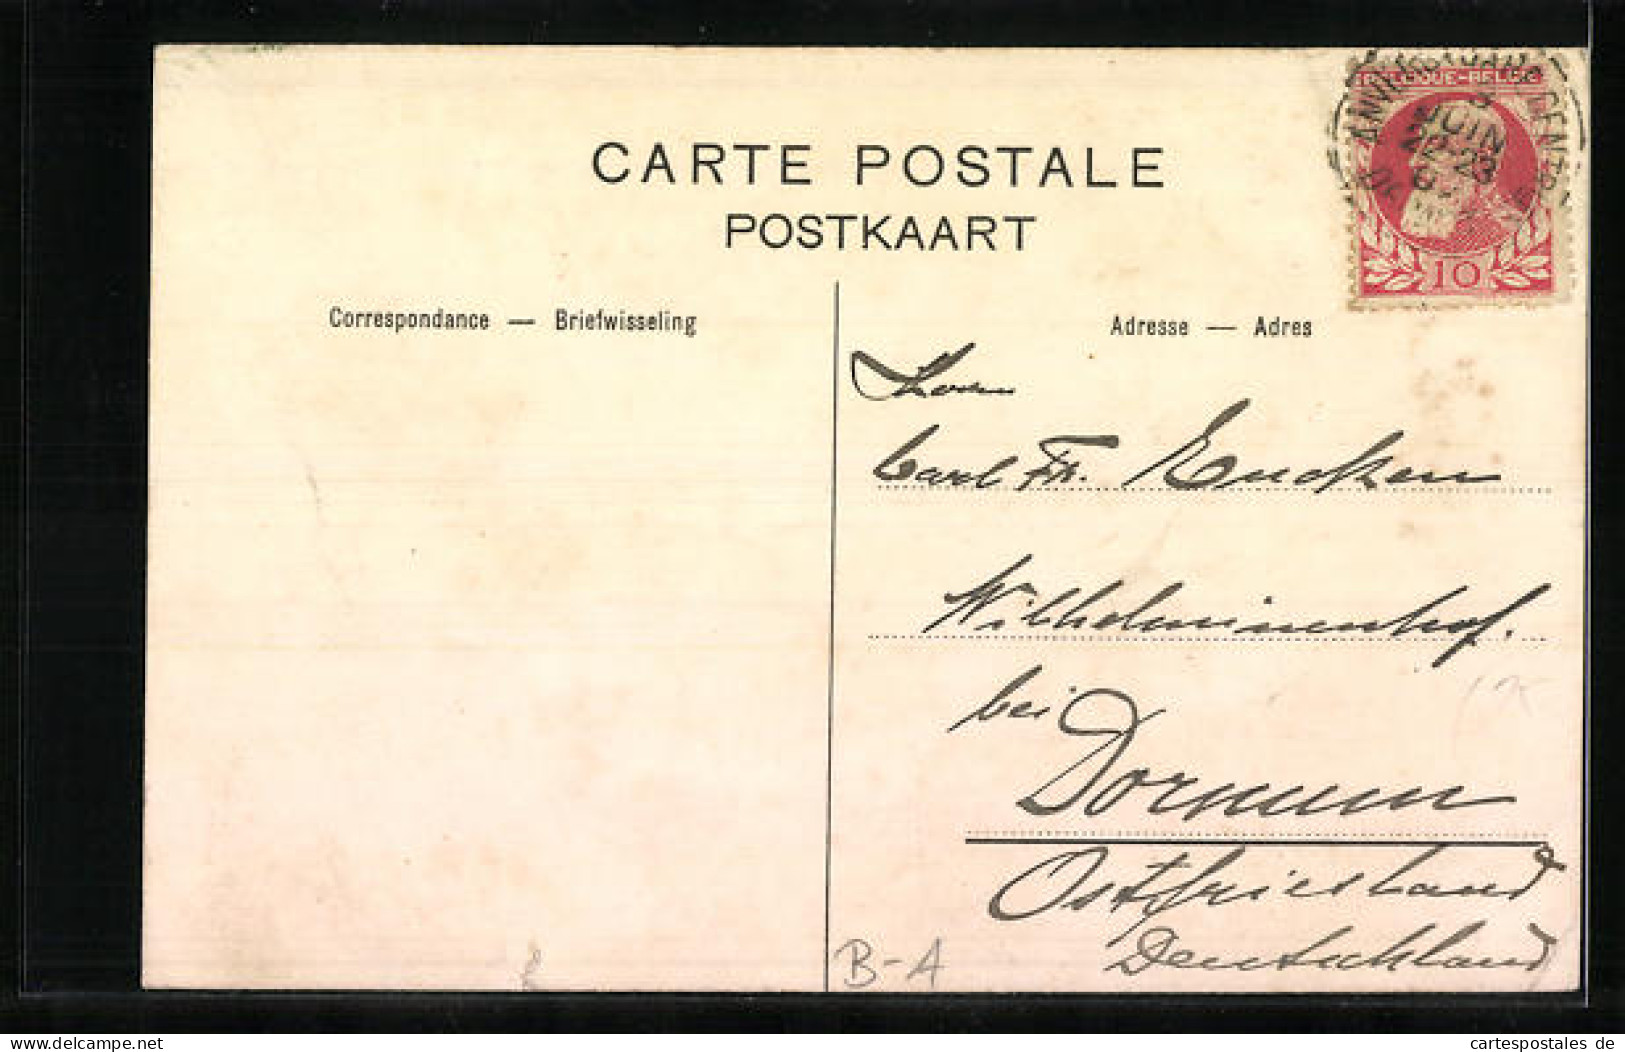 CARTE POSTALE
POSTKAART
Correspondance — Briefwisseling
Adresse — Adres
BELGIQUE-BELGIË
JUIN
22-23
10
Herrn
Carl Fr. Eucken
Wilhelminenhof.
bei
Dornum
Ostfriesland
Deutschland
B-A
delcampe.net
cartespostales de